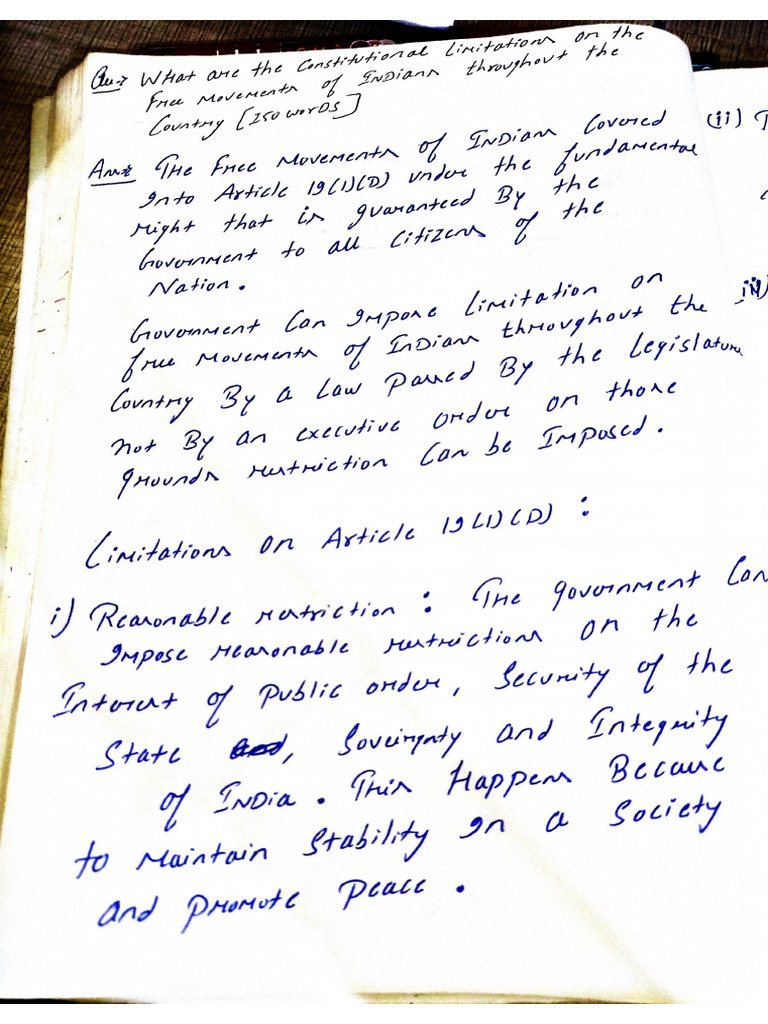 Qu:- What are the Constitutional Limitations on the
Free Movements of Indians throughout the
Country [150 words]
Ans:- The Free Movements of Indians Covered
Into Article 19(1)(D) under the fundamental
right that is guaranteed By the
Government to all Citizens of the
Nation.
Government Can Impose Limitation on
free movements of Indians throughout the
Country By a Law Passed By the Legislature
not By an executive order on those
grounds restriction Can be Imposed.
Limitations on Article 19(1)(D) :
i) Reasonable restriction : The government Can
Impose reasonable restrictions on the
Interest of Public order, Security of the
State, Soveirgnty and Integrity
of India. This Happens Because
to Maintain Stability In a Society
and Promote Peace.
(ii) T
iii)